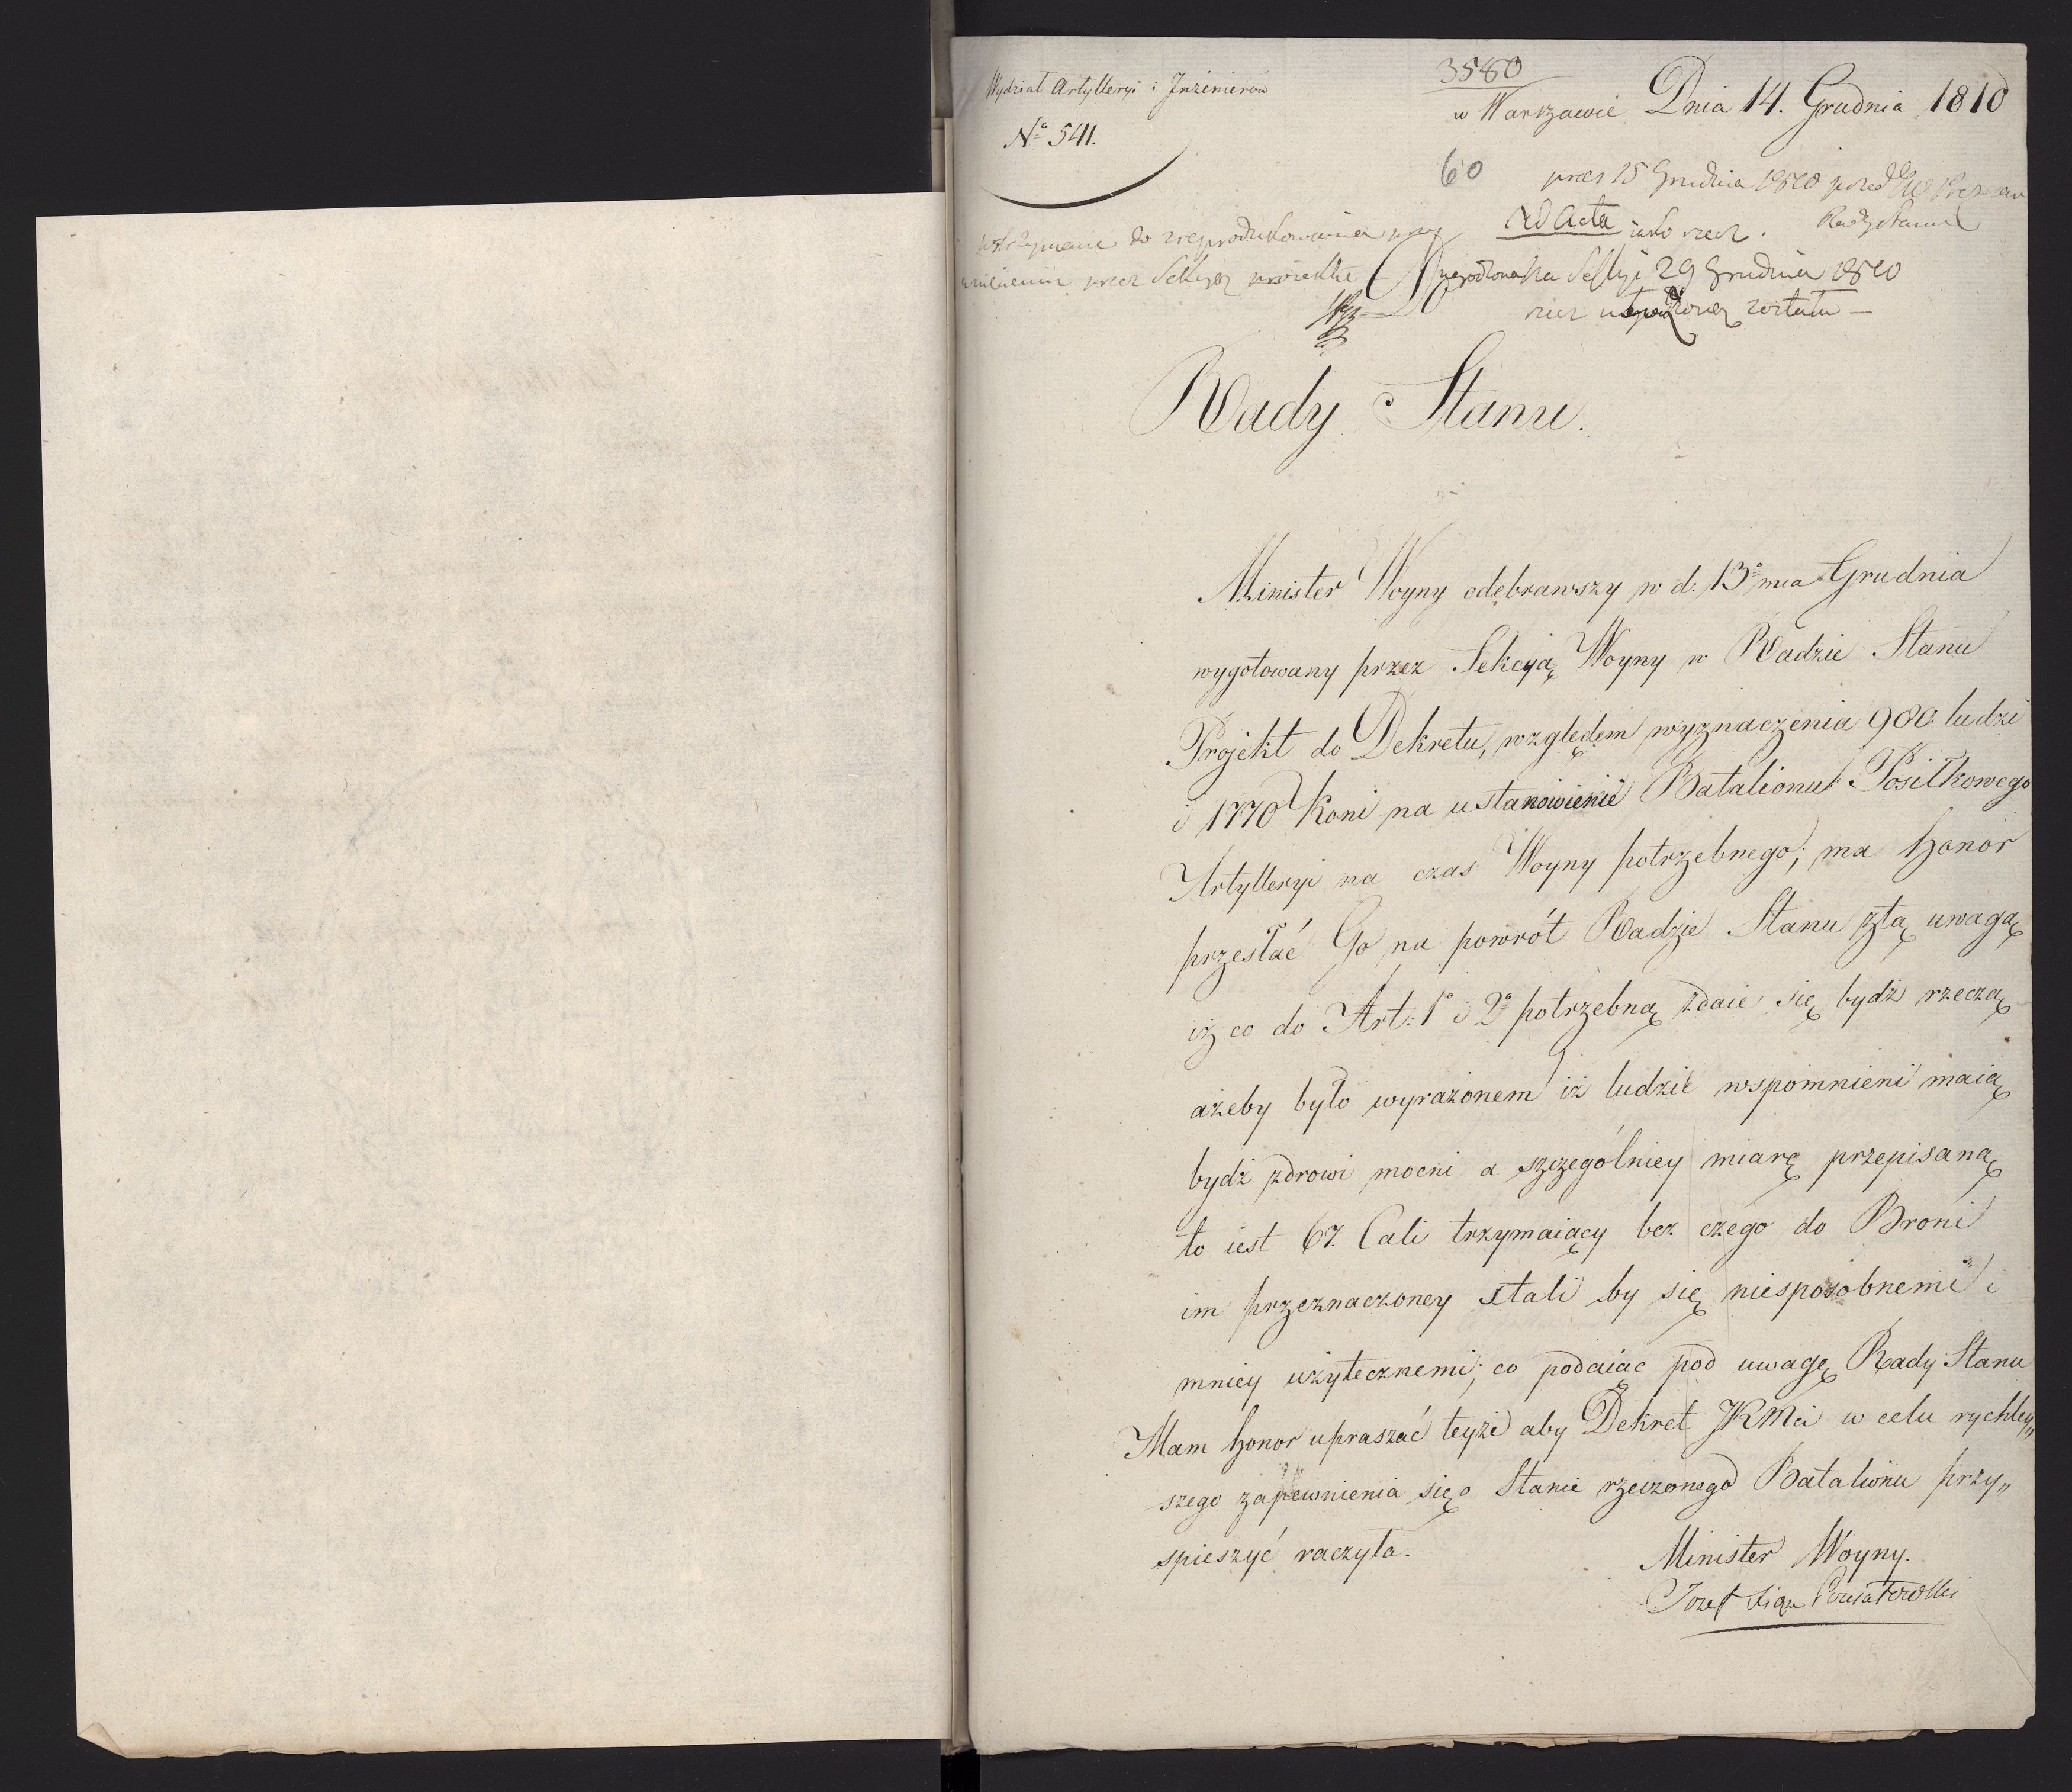 Wydział Artylleryi i Inżenierow
Nº 541.
3580
w Warszawie Dnia 14. Grudnia 1810
60
15 Grudnia 1810
Rady Stanu
Ad Acta
do zreprodukowania
przez Sekcyą
na Sessyi 29 Grudnia 1810
została —
Rady Stanu.
Minister Woyny odebrawszy w d: 13º mca Grudnia
wygotowany przez Sekcyą Woyny w Radzie Stanu
Projekt do Dekretu, względem wyznaczenia 980 ludzi
i 1770 Koni na ustanowienie Batalionu Posiłkowego
Artylleryi na czas Woyny potrzebnego; ma honor
przesłać Go na powrót Radzie Stanu z tą uwagą
iż co do Art: 1º i 2º potrzebną zdaie się bydź rzeczą
ażeby było wyrażonem iż ludzie wspomnieni maią
bydź zdrowi mocni a szczególniey miarę przepisaną
to iest 67. Cali trzymaiący bez czego do Broni
im przeznaczoney stali by się niesposobnemi i
mniey użytecznemi; co podaiąc pod uwagę Rady Stanu
Mam honor upraszać teyże aby Dekret JKMci w celu rychley„
szego zapewnienia się o Stanie rzeczonego Batalionu przy„
spieszyć raczyła.
Minister Woyny.
Jozef Xiąże Poniatowski